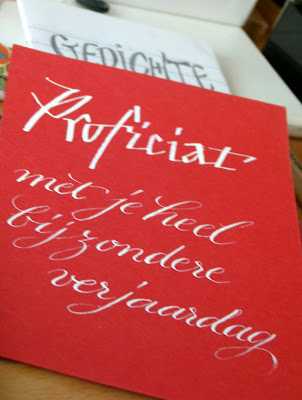 GEDICHTE
Proficiat
met je heel
bijzondere
verjaardag